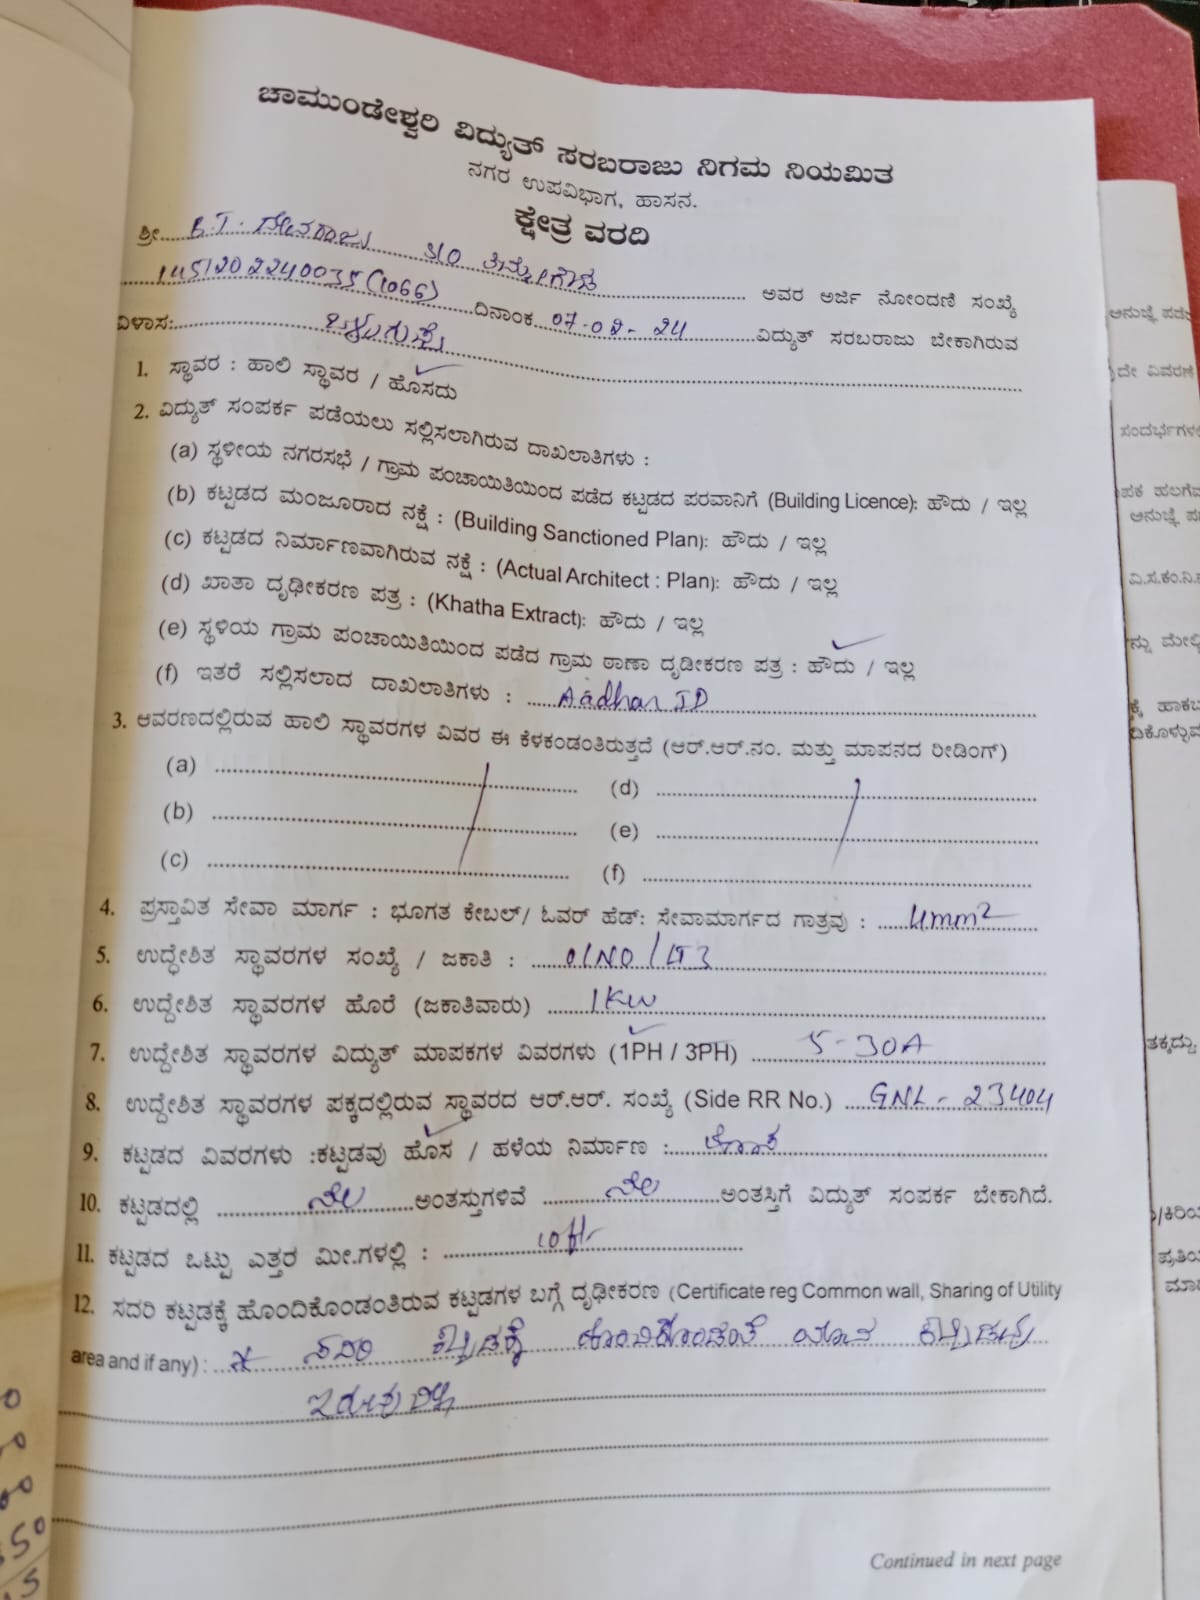 ಚಾಮುಂಡೇಶ್ವರಿ ವಿದ್ಯುತ್ ಸರಬರಾಜು ನಿಗಮ ನಿಯಮಿತ
ನಗರ ಉಪವಿಭಾಗ, ಹಾಸನ.
ಕ್ಷೇತ್ರ ವರದಿ
ಶ್ರೀ B.T. ದೇವರಾಜು S/O ತಿಮ್ಮೇಗೌಡ ಅವರ ಅರ್ಜಿ ನೋಂದಣಿ ಸಂಖ್ಯೆ
1451202240035(1066) ದಿನಾಂಕ 07-02-24 ವಿದ್ಯುತ್ ಸರಬರಾಜು ಬೇಕಾಗಿರುವ
ವಿಳಾಸ:
1. ಸ್ಥಾವರ : ಹಾಲಿ ಸ್ಥಾವರ / ಹೊಸದು
2. ವಿದ್ಯುತ್ ಸಂಪರ್ಕ ಪಡೆಯಲು ಸಲ್ಲಿಸಲಾಗಿರುವ ದಾಖಲಾತಿಗಳು :
(a) ಸ್ಥಳೀಯ ನಗರಸಭೆ / ಗ್ರಾಮ ಪಂಚಾಯಿತಿಯಿಂದ ಪಡೆದ ಕಟ್ಟಡದ ಪರವಾನಿಗೆ (Building Licence): ಹೌದು / ಇಲ್ಲ
(b) ಕಟ್ಟಡದ ಮಂಜೂರಾದ ನಕ್ಷೆ : (Building Sanctioned Plan): ಹೌದು / ಇಲ್ಲ
(c) ಕಟ್ಟಡದ ನಿರ್ಮಾಣವಾಗಿರುವ ನಕ್ಷೆ : (Actual Architect : Plan): ಹೌದು / ಇಲ್ಲ
(d) ಖಾತಾ ದೃಢೀಕರಣ ಪತ್ರ : (Khatha Extract): ಹೌದು / ಇಲ್ಲ
(e) ಸ್ಥಳಿಯ ಗ್ರಾಮ ಪಂಚಾಯಿತಿಯಿಂದ ಪಡೆದ ಗ್ರಾಮ ಠಾಣಾ ದೃಡೀಕರಣ ಪತ್ರ : ಹೌದು / ಇಲ್ಲ
(f) ಇತರೆ ಸಲ್ಲಿಸಲಾದ ದಾಖಲಾತಿಗಳು : Aadhar ID
3. ಆವರಣದಲ್ಲಿರುವ ಹಾಲಿ ಸ್ಥಾವರಗಳ ವಿವರ ಈ ಕೆಳಕಂಡಂತಿರುತ್ತದೆ (ಆರ್.ಆರ್.ನಂ. ಮತ್ತು ಮಾಪನದ ರೀಡಿಂಗ್)
(a) (d)
(b) (e)
(c) (f)
4. ಪ್ರಸ್ತಾವಿತ ಸೇವಾ ಮಾರ್ಗ : ಭೂಗತ ಕೇಬಲ್/ ಓವರ್ ಹೆಡ್: ಸೇವಾಮಾರ್ಗದ ಗಾತ್ರವು : 4mm2
5. ಉದ್ಧೇಶಿತ ಸ್ಥಾವರಗಳ ಸಂಖ್ಯೆ / ಜಕಾತಿ : 01NO / LT3
6. ಉದ್ದೇಶಿತ ಸ್ಥಾವರಗಳ ಹೊರೆ (ಜಕಾತಿವಾರು) 1KW
7. ಉದ್ದೇಶಿತ ಸ್ಥಾವರಗಳ ವಿದ್ಯುತ್ ಮಾಪಕಗಳ ವಿವರಗಳು (1PH / 3PH) 5-30A
8. ಉದ್ದೇಶಿತ ಸ್ಥಾವರಗಳ ಪಕ್ಕದಲ್ಲಿರುವ ಸ್ಥಾವರದ ಆರ್.ಆರ್. ಸಂಖ್ಯೆ (Side RR No.) GNL - 23404
9. ಕಟ್ಟಡದ ವಿವರಗಳು :ಕಟ್ಟಡವು ಹೊಸ / ಹಳೆಯ ನಿರ್ಮಾಣ : ಹೊಸ
10. ಕಟ್ಟಡದಲ್ಲಿ ನೆಲ ಅಂತಸ್ತುಗಳಿವೆ ನೆಲ ಅಂತಸ್ತಿಗೆ ವಿದ್ಯುತ್ ಸಂಪರ್ಕ ಬೇಕಾಗಿದೆ.
11. ಕಟ್ಟಡದ ಒಟ್ಟು ಎತ್ತರ ಮೀ.ಗಳಲ್ಲಿ : 10ft
12. ಸದರಿ ಕಟ್ಟಡಕ್ಕೆ ಹೊಂದಿಕೊಂಡಂತಿರುವ ಕಟ್ಟಡಗಳ ಬಗ್ಗೆ ದೃಢೀಕರಣ (Certificate reg Common wall, Sharing of Utility
area and if any) : ಸದರಿ ಕಟ್ಟಡಕ್ಕೆ ಹೊಂದಿಕೊಂಡಂತೆ ಯಾವ ಕಟ್ಟಡವು
ಇರುವುದಿಲ್ಲ
Continued in next page